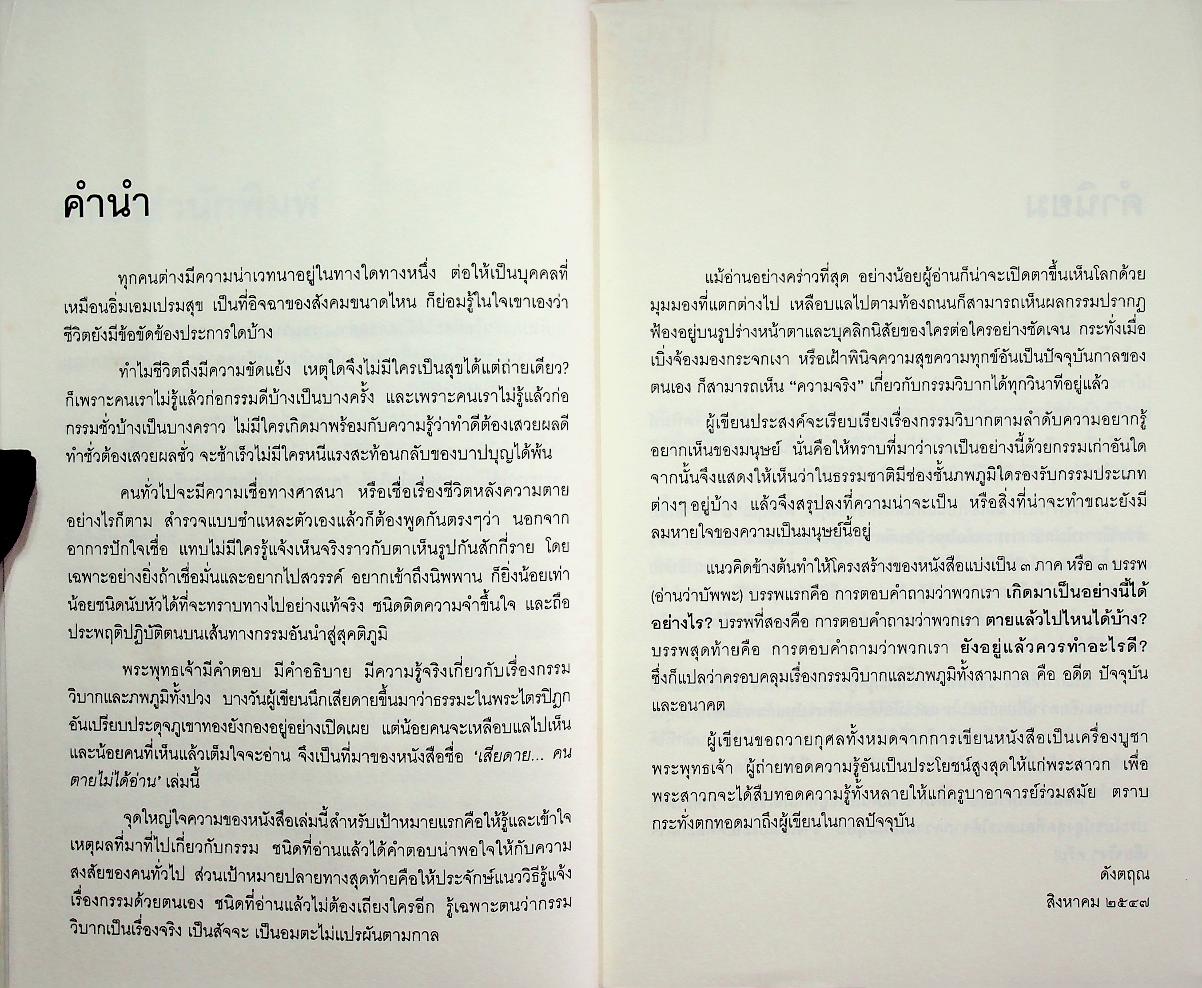 คำนำ
ทุกคนต่างมีความน่าเวทนาอยู่ในทางใดทางหนึ่ง ต่อให้เป็นบุคคลที่
เหมือนอิ่มเอมเปรมสุข เป็นที่อิจฉาของสังคมขนาดไหน ก็ย่อมรู้ในใจเขาเองว่า
ชีวิตยังมีข้อขัดข้องประการใดบ้าง
ทำไมชีวิตถึงมีความขัดแย้ง เหตุใดจึงไม่มีใครเป็นสุขได้แต่ถ่ายเดียว?
ก็เพราะคนเราไม่รู้แล้วก่อกรรมดีบ้างเป็นบางครั้ง และเพราะคนเราไม่รู้แล้วก่อ
กรรมชั่วบ้างเป็นบางคราว ไม่มีใครเกิดมาพร้อมกับความรู้ว่าทำดีต้องเสวยผลดี
ทำชั่วต้องเสวยผลชั่ว จะช้าเร็วไม่มีใครหนีแรงสะท้อนกลับของบาปบุญได้พ้น
คนทั่วไปจะมีความเชื่อทางศาสนา หรือเชื่อเรื่องชีวิตหลังความตาย
อย่างไรก็ตาม สำรวจแบบชำแหละตัวเองแล้วก็ต้องพูดกันตรงๆว่า นอกจาก
อาการปักใจเชื่อ แทบไม่มีใครรู้แจ้งเห็นจริงราวกับตาเห็นรูปกันสักกี่ราย โดย
เฉพาะอย่างยิ่งถ้าเชื่อมั่นและอยากไปสวรรค์ อยากเข้าถึงนิพพาน ก็ยิ่งน้อยเท่า
น้อยชนิดนับหัวได้ที่จะทราบทางไปอย่างแท้จริง ชนิดติดความจำขึ้นใจ และถือ
ประพฤติปฏิบัติตนบนเส้นทางกรรมอันนำสู่สุคติภูมิ
พระพุทธเจ้ามีคำตอบ มีคำอธิบาย มีความรู้จริงเกี่ยวกับเรื่องกรรม
วิบากและภพภูมิทั้งปวง บางวันผู้เขียนนึกเสียดายขึ้นมาว่าธรรมะในพระไตรปิฎก
อันเปรียบประดุจภูเขาทองยังกองอยู่อย่างเปิดเผย แต่น้อยคนจะเหลือบแลไปเห็น
และน้อยคนที่เห็นแล้วเต็มใจจะอ่าน จึงเป็นที่มาของหนังสือชื่อ ‘เสียดาย... คน
ตายไม่ได้อ่าน’ เล่มนี้
จุดใหญ่ใจความของหนังสือเล่มนี้สำหรับเป้าหมายแรกคือให้รู้และเข้าใจ
เหตุผลที่มาที่ไปเกี่ยวกับกรรม ชนิดที่อ่านแล้วได้คำตอบน่าพอใจให้กับความ
สงสัยของคนทั่วไป ส่วนเป้าหมายปลายทางสุดท้ายคือให้ประจักษ์แนววิธีรู้แจ้ง
เรื่องกรรมด้วยตนเอง ชนิดที่อ่านแล้วไม่ต้องเถียงใครอีก รู้เฉพาะตนว่ากรรม
วิบากเป็นเรื่องจริง เป็นสัจจะ เป็นอมตะไม่แปรผันตามกาล
แม้อ่านอย่างคร่าวที่สุด อย่างน้อยผู้อ่านก็น่าจะเปิดตาขึ้นเห็นโลกด้วย
มุมมองที่แตกต่างไป เหลือบแลไปตามท้องถนนก็สามารถเห็นผลกรรมปรากฏ
ฟ้องอยู่บนรูปร่างหน้าตาและบุคลิกนิสัยของใครต่อใครอย่างชัดเจน กระทั่งเมื่อ
เบิ่งจ้องมองกระจกเงา หรือเฝ้าพินิจความสุขความทุกข์อันเป็นปัจจุบันกาลของ
ตนเอง ก็สามารถเห็น “ความจริง” เกี่ยวกับกรรมวิบากได้ทุกวินาทีอยู่แล้ว
ผู้เขียนประสงค์จะเรียบเรียงเรื่องกรรมวิบากตามลำดับความอยากรู้
อยากเห็นของมนุษย์ นั่นคือให้ทราบที่มาว่าเราเป็นอย่างนี้ด้วยกรรมเก่าอันใด
จากนั้นจึงแสดงให้เห็นว่าในธรรมชาติมีช่องชั้นภพภูมิใดรองรับกรรมประเภท
ต่างๆ อยู่บ้าง แล้วจึงสรุปลงที่ความน่าจะเป็น หรือสิ่งที่น่าจะทำขณะยังมี
ลมหายใจของความเป็นมนุษย์นี้อยู่
แนวคิดข้างต้นทำให้โครงสร้างของหนังสือแบ่งเป็น ๓ ภาค หรือ ๓ บรรพ
(อ่านว่าบัพพะ) บรรพแรกคือ การตอบคำถามว่าพวกเรา เกิดมาเป็นอย่างนี้ได้
อย่างไร? บรรพที่สองคือ การตอบคำถามว่าพวกเรา ตายแล้วไปไหนได้บ้าง?
บรรพสุดท้ายคือ การตอบคำถามว่าพวกเรา ยังอยู่แล้วควรทำอะไรดี?
ซึ่งก็แปลว่าครอบคลุมเรื่องกรรมวิบากและภพภูมิทั้งสามกาล คือ อดีต ปัจจุบัน
และอนาคต
ผู้เขียนขอถวายกุศลทั้งหมดจากการเขียนหนังสือเป็นเครื่องบูชา
พระพุทธเจ้า ผู้ถ่ายทอดความรู้อันเป็นประโยชน์สูงสุดให้แก่พระสาวก เพื่อ
พระสาวกจะได้สืบทอดความรู้ทั้งหลายให้แก่ครูบาอาจารย์ร่วมสมัย ตราบ
กระทั่งตกทอดมาถึงผู้เขียนในกาลปัจจุบัน
ดังตฤณ
สิงหาคม ๒๕๔๗